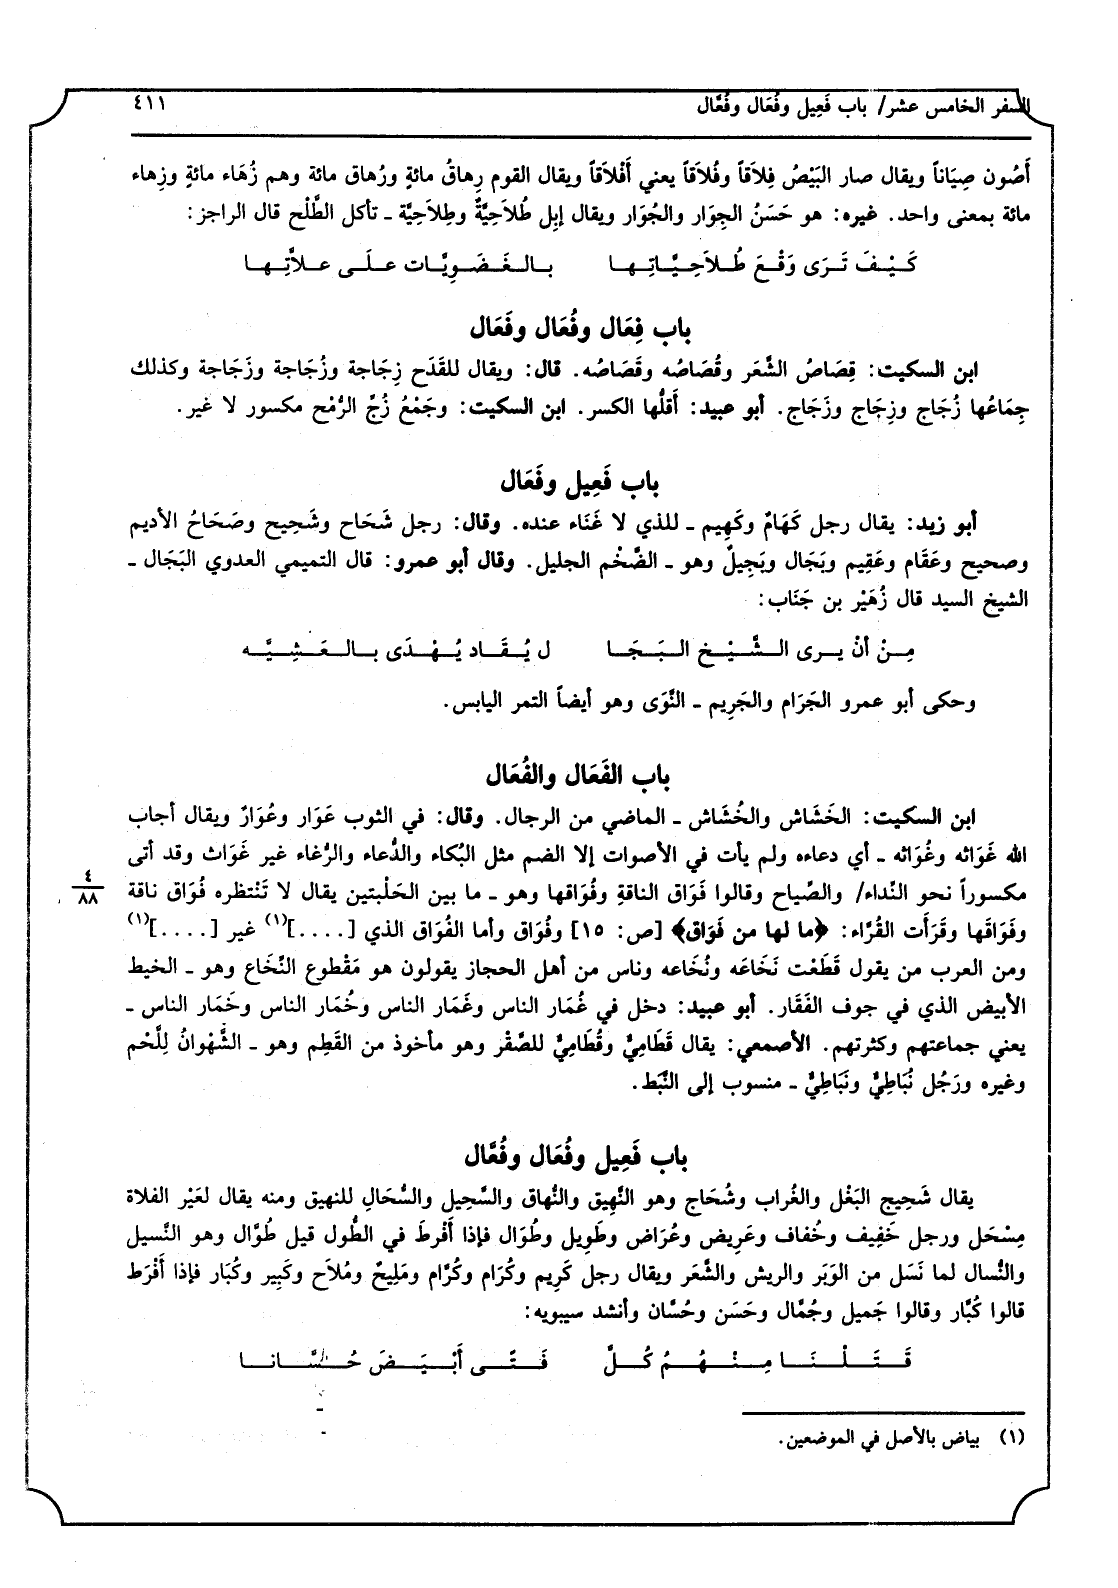 السفر الخامس عشر/ باب فَعِيل وفُعَال وفُعَّال ٤١١
أَصُون صِيَاناً ويقال صار البَيْضُ فِلاَقاً وفُلاَقاً يعني أَفْلاَقاً ويقال القوم رِهاقُ مائةٍ ورُهاق مائة وهم زُهَاء مائةٍ وزِهاء
مائة بمعنى واحد. غيره: هو حَسَنُ الجِوَار والجُوَار ويقال إبِل طُلاَحِيَّةٌ وطِلاَحِيَّة ـ تأكل الطَّلْح قال الراجز:
كَيْفَ تَرَى وَقْعَ طُلاَحِيَّاتِها بالغَضَوِيَّات علَى علاَّتِها
باب فِعَال وفُعَال وفَعَال
ابن السكيت: قِصَاصُ الشَّعَر وقُصَاصُه وقَصَاصُه. قال: ويقال للقَدَح زِجَاجة وزُجَاجة وزَجَاجة وكذلك
جِمَاعُها زُجَاج وزِجَاج وزَجَاج. أبو عبيد: أَقلُّها الكسر. ابن السكيت: وجَمْعُ زُجِّ الرُّمْح مكسور لا غير.
باب فَعِيل وفَعَال
أبو زيد: يقال رجل كَهَامٌ وكَهِيم ـ للذي لا غَنَاء عنده. وقال: رجل شَحَاح وشَحِيح وصَحَاحُ الأديم
وصحيح وعَقَام وعَقِيم وبَجَال وبَجِيلٌ وهو ـ الضَّخْم الجليل. وقال أبو عمرو: قال التميمي العدوي البَجَال ـ
الشيخ السيد قال زُهَيْر بن جَنَاب:
مِنْ أنْ يرى الشَّيْخ البَجَا ل يُقَاد يُهْدَى بالعَشِيَّه
وحكى أبو عمرو الجَرَام والجَرِيم ـ النَّوَى وهو أيضاً التمر اليابس.
باب الفَعَال والفُعَال
ابن السكيت: الخَشَاش والخُشَاش ـ الماضي من الرجال. وقال: في الثوب عَوَار وعُوَارٌ ويقال أجاب
الله غَوَاثه وغُوَاثه ـ أي دعاءه ولم يأت في الأصوات إلا الضم مثل البُكاء والدُّعاء والرُّغاء غير غَوَاث وقد أتى
مكسوراً نحو النِّداء/ والصِّياح وقالوا فَوَاق الناقةِ وفُوَاقها وهو ـ ما بين الحَلْبتين يقال لا تَنْتظره فُوَاق ناقة
٤
٨٨
وفَوَاقَها وقَرَأَت القُرَّاء: ﴿ما لها من فَوَاق﴾ [ص: ١٥] وفُوَاق وأما الفُوَاق الذي [....](١) غير [....](١)
ومن العرب من يقول قَطَعْت نَخَاعَه ونُخَاعه وناس من أهل الحجاز يقولون هو مَقْطوع النِّخَاع وهو ـ الخيط
الأبيض الذي في جوف الفَقَار. أبو عبيد: دخل في غُمَار الناس وغَمَار الناس وخُمَار الناس وخَمَار الناس ـ
يعني جماعتهم وكثرتهم. الأصمعي: يقال قَطَامِيٌّ وقُطَامِيٌّ للصَّقْر وهو مأخوذ من القَطِم وهو ـ الشَّهْوانُ لِلَّحْم
وغيره ورَجُل نُبَاطِيٌّ ونَبَاطِيٌّ ـ منسوب إلى النَّبَط.
باب فَعِيل وفُعَال وفُعَّال
يقال شَحِيج البَغْل والغُراب وشُحَاج وهو النَّهِيق والنُّهاق والسَّحِيل والسُّحَال للنهيق ومنه يقال لعَيْر الفلاة
مِسْحَل ورجل خَفِيف وخُفاف وعَرِيض وعُرَاض وطَوِيل وطُوَال فإذا أَفْرطَ في الطُّول قيل طُوَّال وهو النَّسيل
والنُّسال لما نَسَل من الوَبَر والريش والشَّعَر ويقال رجل كَرِيم وكُرَام وكُرَّام ومَلِيحٌ ومُلاَح وكَبِير وكُبَار فإذا أَفْرَط
قالوا كُبَّار وقالوا جَميل وجُمَّال وحَسَن وحُسَّان وأنشد سيبويه:
قَتَلْنَا مِنْهُمُ كُلَّ فَتًى أَبْيَضَ حُسَّانا
(١) بياض بالأصل في الموضعين.